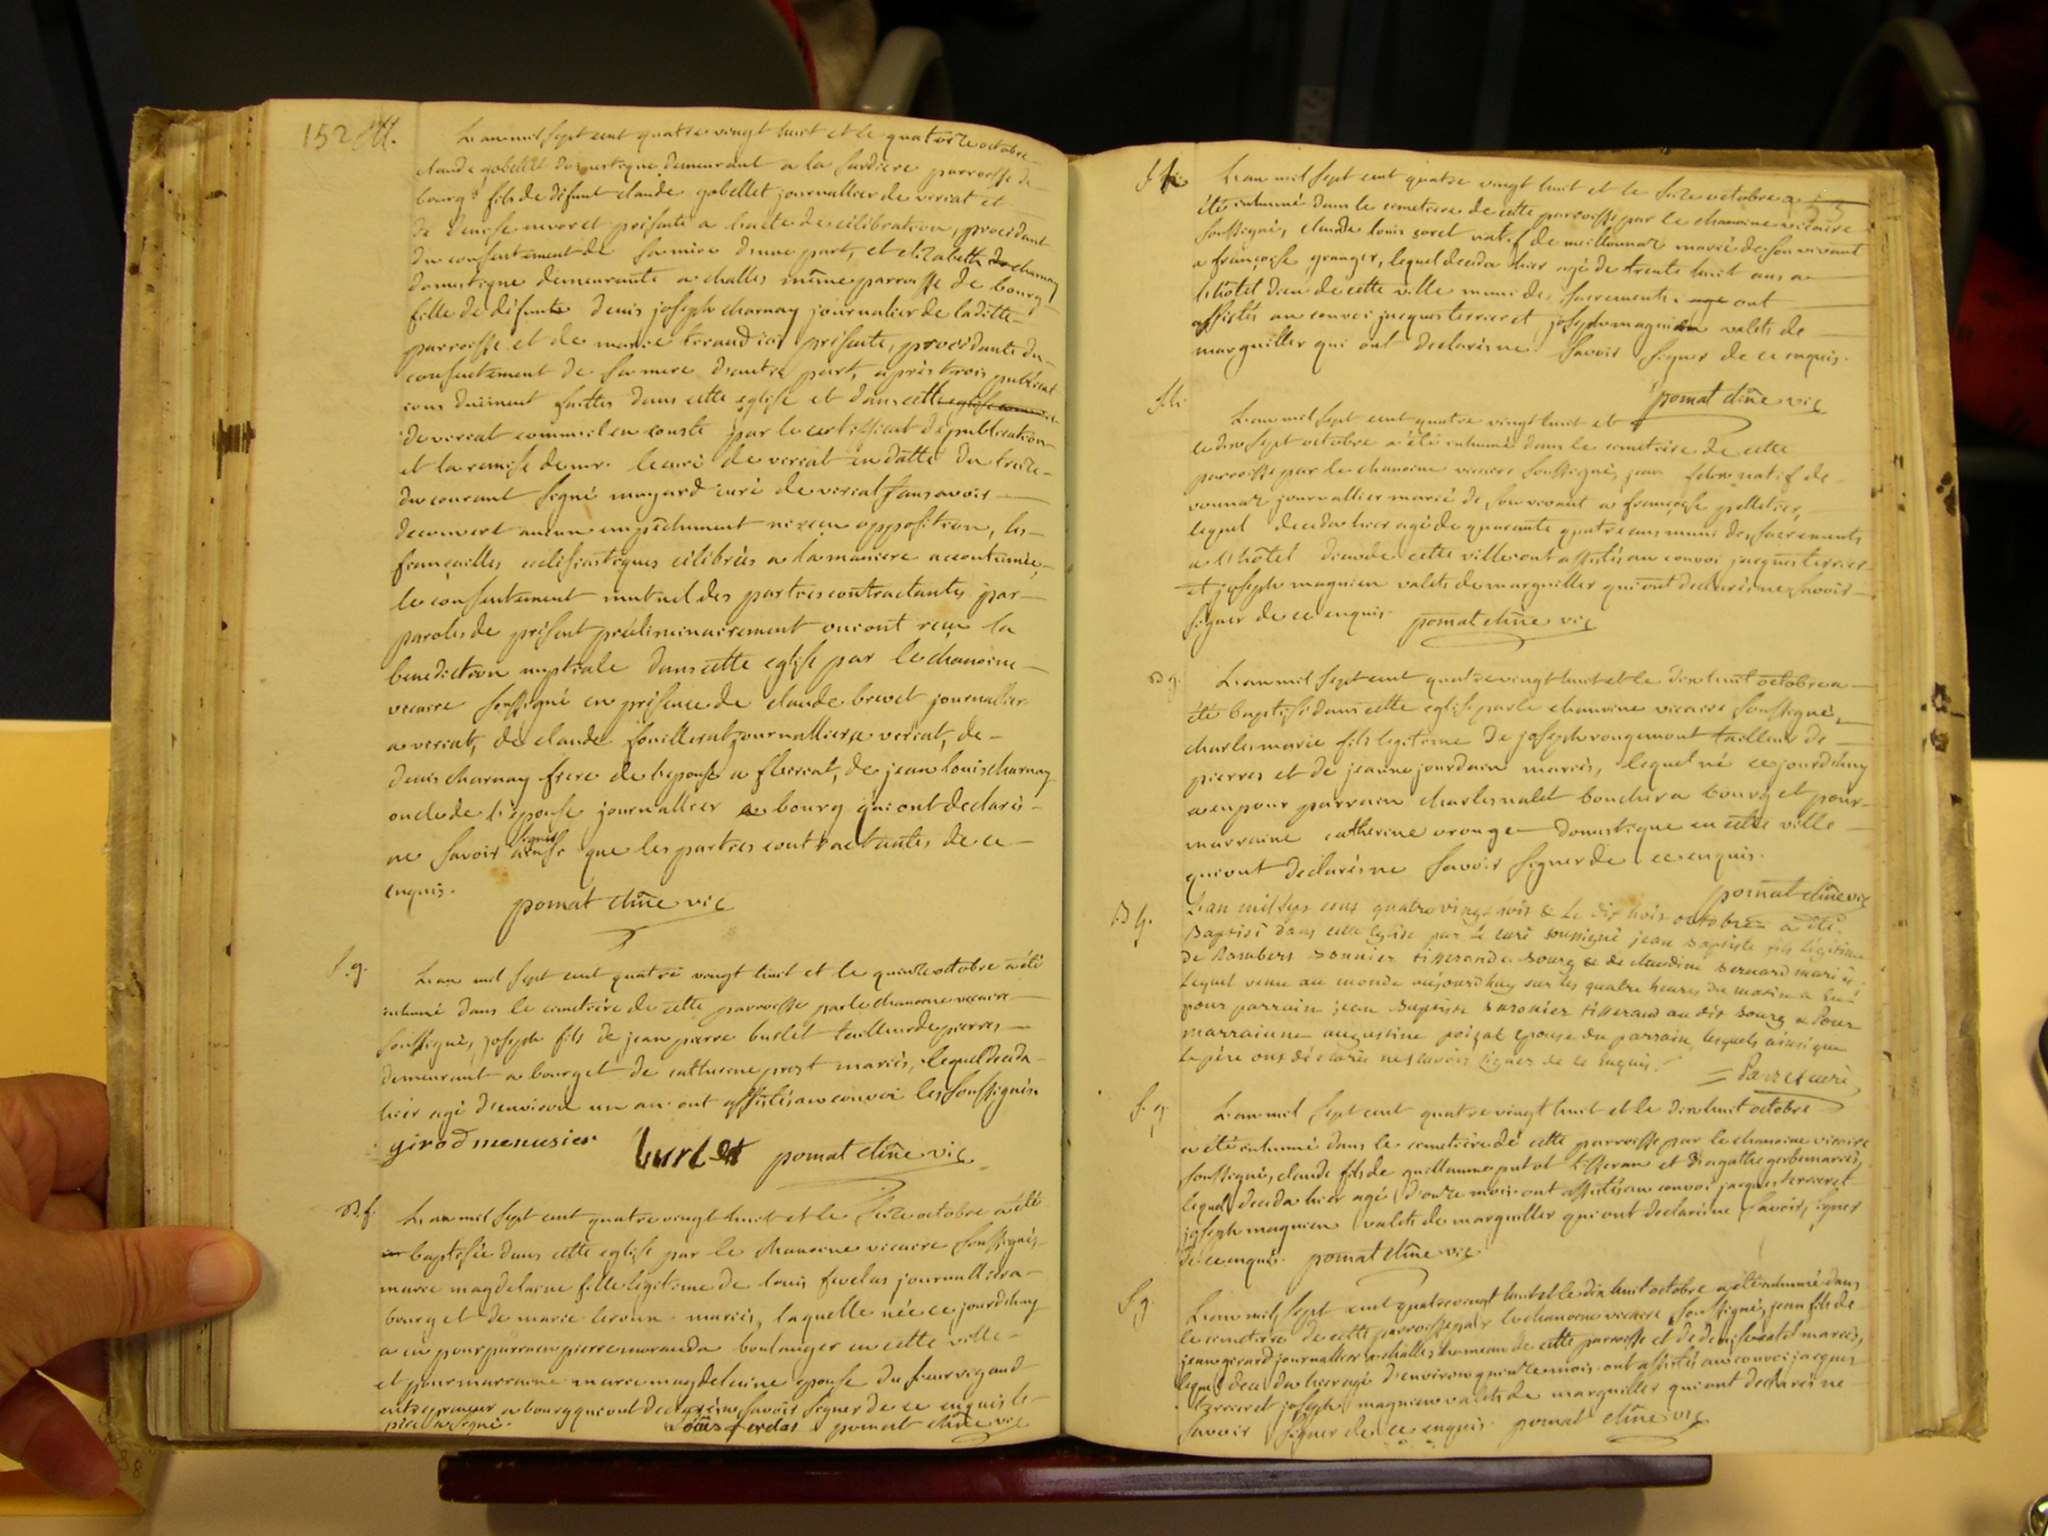 152 M.
L'an mil sept cent quatre vingt huit et le quatorze octobre
claude gobellet domestique demeurant a la parroisse de
bourg fils de défunt claude gobellet journallier de veriat et
de denise present a l'acte de célébration, procédant
du consentement de sa mere d'une part, et elizabeth de charnay
domestique demeurante a challes même parroisse de bourg
fille de défunt denis joseph charnay journalier de laditte
parroisse et de marie ici présente, procédante du
consentement de sa mere d'autre part, après trois publicat
ions duëment faittes dans cette eglise et dans cette eglise
de veriat comme il en conste par le certifficat de publication
et la remise de mr. le curé de veriat en datte du treize
du courant signé mugard curé de veriat sans avoir
decouvert aucun empêchement ni reçu opposition, les
françailles eclesiastiques célébrées a la maniere accoutumée,
le consentement mutuel des parties contractantes par
paroles de présent préliminairement oui ont reçu la
benediction nuptiale dans cette eglise par le chanoine
vicaire soussigné en présence de claude brevet journallier
a veriat, de claude fouillerat journallier a veriat, de
denis charnay frere de l'epouse a de jean louis charnay
oncle de l'epouse journallier a bourg qui ont declarés
ne savoir signer ainsi que les parties contractantes de ce
enquis.
pomat chne vic
S. g.
L'an mil sept cent quatre vingt huit et le quinze octobre a été
inhumé dans le cimetiere de cette parroisse par le chanoine vicaire
soussigné, joseph fils de jean pierre burlet tailleur de pierres
demeurant a bourg et de catherine prost mariés, lequel décéda
hier agé d'environ un an ont assistés au convoi les soussignés
girod menusier burlet pomat chne vic
B. f.
L'an mil sept cent quatre vingt huit et le seize octobre a été
baptisée dans cette eglise par le chanoine vicaire soussigné
marie magdelaine fille légitime de louis journallier a
bourg et de marie mariés, laquelle née ce jourdhuy
a eu pour parrain pierre moranda boulanger en cette ville
et pour marraine marie magdelaine epouse du sieur vigaud
entrepreneur a bourg qui ont declarés ne savoir signer de ce enquis le
père a signé. Louis pomat chne vic
S. h.
L'an mil sept cent quatre vingt huit et le seize octobre a
été inhumé dans le cimetiere de cette parroisse par le chanoine vicaire
soussigné, claude louis soret natif de meillonnaz marié de son vivant
a françoise granger, lequel deceda hier agé de trente huit ans a
l'hôtel dieu de cette ville muni des sacrements ont
assistés au convoi jacques terrier et joseph magnien valets de
marguillier qui ont declarés ne savoir signer de ce enquis.
pomat chne vic
S. h.
L'an mil sept cent quatre vingt huit et
le dix sept octobre a été inhumé dans le cimetiere de cette
parroisse par le chanoine vicaire soussigné, jean natif de
vonnaz journallier marié de son vivant a françoise pelletier,
lequel deceda hier agé de quarante quatre ans muni des sacrements
a l'hôtel dieu de cette ville ont assistés au convoi jacques terrier
et joseph magnien valets de marguillier qui ont declarés ne savoir
signer de ce enquis. pomat chne vic
B g.
L'an mil sept cent quatre vingt huit et le dix huit octobre a
été baptisé dans cette eglise par le chanoine vicaire soussigné,
charles marie fils legitime de joseph rougemont tailleur de
pierres et de jeanne jourdain mariés, lequel né ce jourdhuy
a eu pour parrain charles nalet boucher a bourg et pour
marraine catherine vronge domestique en cette ville
qui ont declarés ne savoir signer de ce enquis.
pomat chne vic
B g.
L'an mil sept cent quatre vingt huit & le dix huit octobre a été
Baptisé dans cette Eglise par le curé soussigné jean Baptiste fils légitime
de Lambert Bonnier tisserand a Bourg & de claudine Bernard mariés
lequel venu au monde aujourdhuy sur les quatre heures du matin a eu
pour parrain jean Baptiste tisserand au dit Bourg & pour
marraine augustine poizat epouse du parrain, lesquels ainsi que
le père ont déclarés ne savoir signer de ce enquis.
curé
S. g.
L'an mil sept cent quatre vingt huit et le dix huit octobre
a été inhumé dans le cimetiere de cette parroisse par le chanoine vicaire
soussigné, claude fils de guillaume putot tisseran et d'agathe gerbe mariés,
lequel deceda hier agé d'onze mois ont assistés au convoi jacques terrier et
joseph magnien valets de marguillier qui ont declarés ne savoir signer
de ce enquis. pomat chne vic
S g.
L'an mil sept cent quatre vingt huit et le dix huit octobre a été inhumé dans
le cimetiere de cette parroisse par le chanoine vicaire soussigné, jean fils de
jean girard journallier a challes hameau de cette parroisse et de denise mariés,
lequel deceda hier agé d'environ quinze mois ont assistés au convoi jacques
terrier et joseph magnien valets de marguillier qui ont declarés ne
savoir signer de ce enquis pomat chne vic